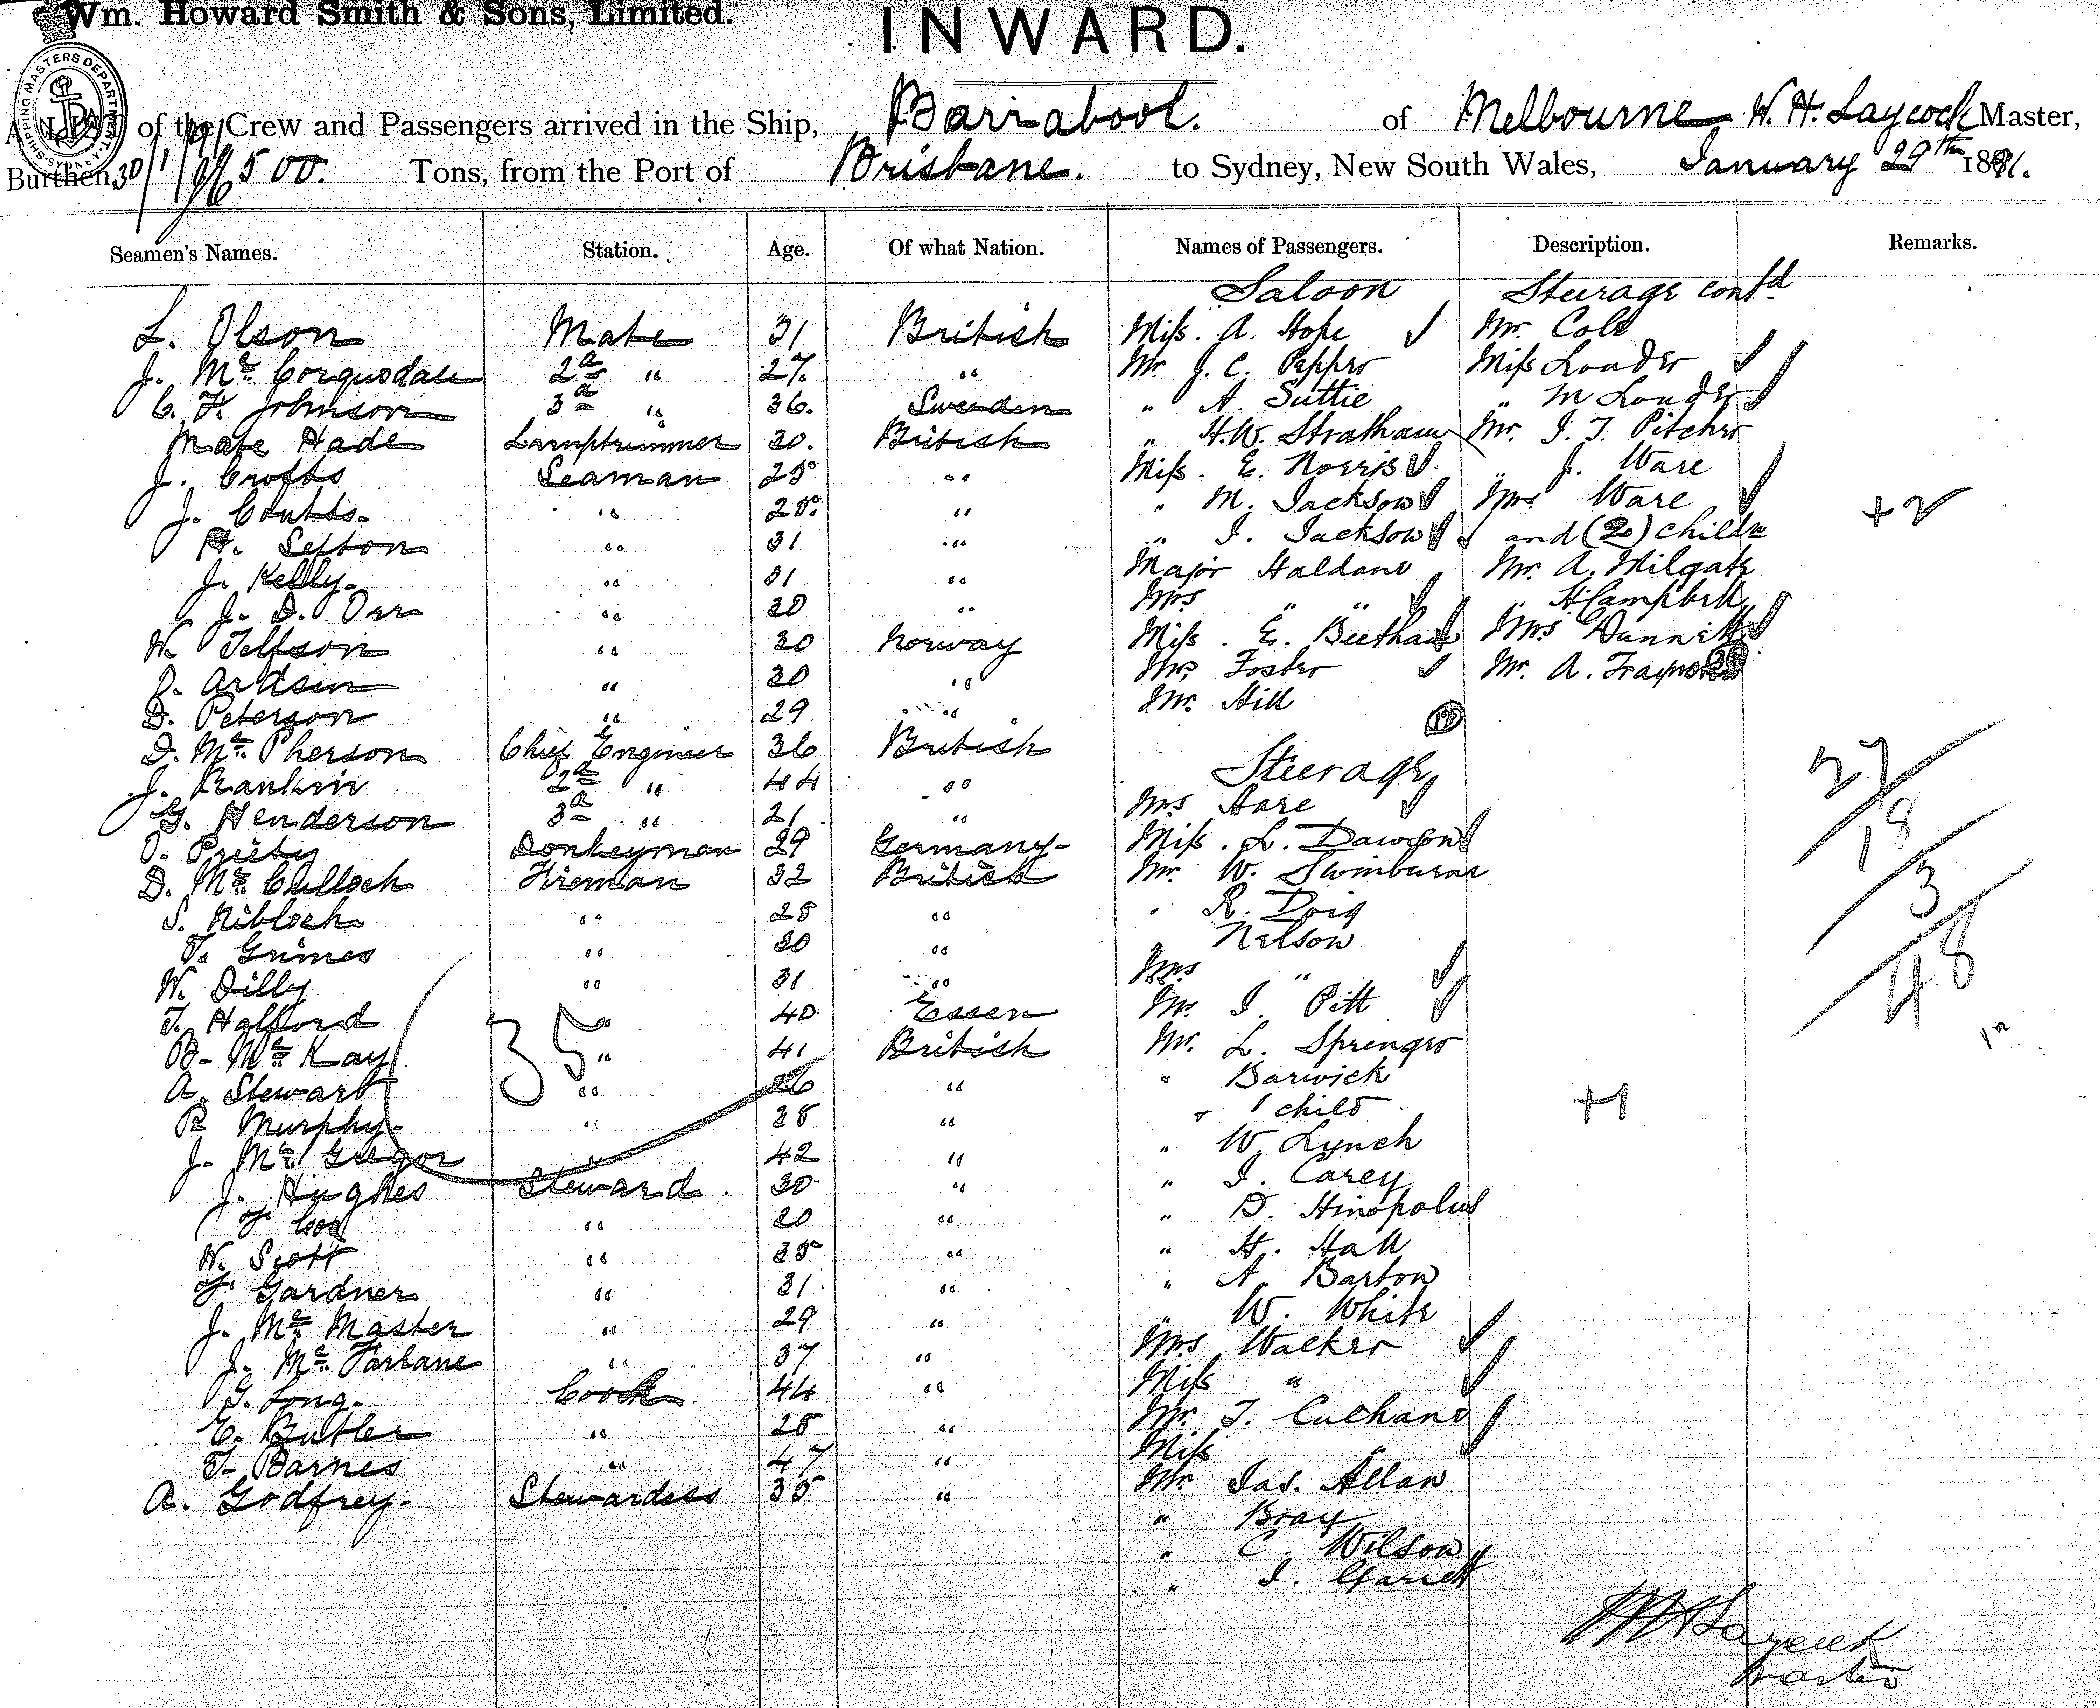 Wm. Howard Smith & Sons, Limited.
INWARD.
SHIPPING MASTERS DEPARTMENT SYDNEY
of the Crew and Passengers arrived in the Ship, Barrabool. of Melbourne W. H. Laycock Master,
Burthen 500. Tons, from the Port of Brisbane. to Sydney, New South Wales, January 29th 1891.
30/1/91
Seamen's Names. Station. Age. Of what Nation. Names of Passengers. Description. Remarks.
Saloon Steerage contd
L. Olson Mate 31 British Miss. A. Hope Mr. Cole
J. Mc Corquodale 2d " 27. " Mr J. C. Pepper Miss Louder
C. F. Johnson 3d " 36. Sweeden " A Suttie " M Louder
Hade Lamptrimmer 30. British " H.W. Stratham Mr. I. T. Pitcher
J. Crofts Seaman 25 " Miss. E. Norris " J. Ware
J. Coutts. " 28. " " M. Jackson Mrs Ware +2
H. Sefton " 31 " " I. Jackson and (2) childn
J. Kelly. " 31 " Major Haldane Mr. A. Milgate
J. D. Orr " 30 " Mrs " " " H Campbell
W. Tellfson " 30 Norway Miss. E. Beetham Mrs Dunnett
Ardsen " 30 " Mrs Foster Mr. A.
D. Peterson " 29 " Mr. Hill
D. Mc Pherson Chief Engineer 36 British
J. Rankin 2d " 44 " Steerage 27
G. Henderson 3d " 21 " Mrs Hare 18
Donkeyman 29 Germany Miss. L. Dawson
D. Mc Culloch Fireman 32 British Mr W. Swinburne 3
S. Niblock " 28 " " R. Doig
T. Grimes " 30 " Nelson 48
W. Dilly " 31 " Mrs "
T. Halford " 40 Essen Mr. I. Pitt
B. Mc Kay " 41 British Mr. L. Sprenger
35
A. Stewart " 26 " " Barwick
R Murphy. " 28 " " 1 child +1
J. Mc Gregor " 42 " " W Lynch
J. Hughes Steward 30 " " I. Carey
F Cox " 20 " " D. Hinopolus
W. Scott " 25 " " H. Hall
F. Gardner " 31 " " A. Barton
J. Mc Master " 29 " " W. White
J. Mc Farlane " 37 " Mrs Walker
G. Long. Cook 44 " Miss "
E. Butler " 28 " Mr. T. Cuchane
T. Barnes " 47 " Miss "
A. Godfrey. Stewardess 35 " Mr Jas. Allan
" Bray
" C. Wilson
" I. Garrett
W H Laycock
Master